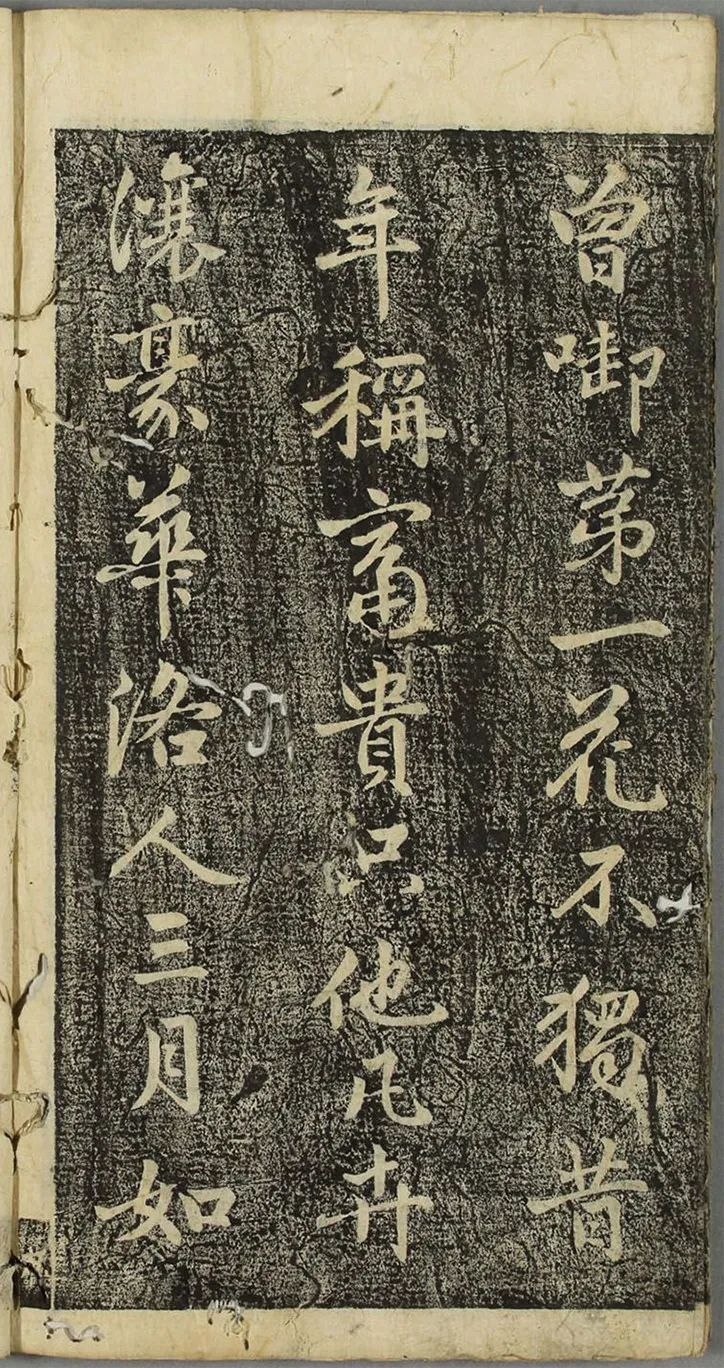 曾啣苐一花不獨昔
年稱富貴只他凡卉
讓豪華洛人三月如